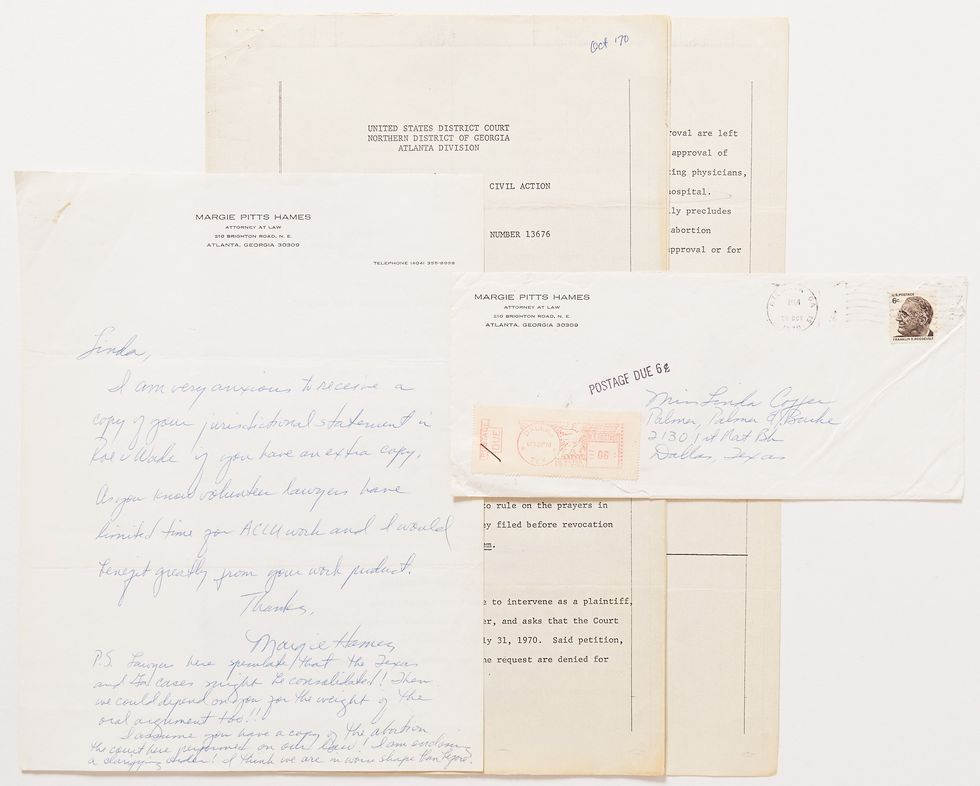 Oct '70
UNITED STATES DISTRICT COURT
NORTHERN DISTRICT OF GEORGIA
ATLANTA DIVISION
CIVIL ACTION
NUMBER 13676
to rule on the prayers in
ey filed before revocation
em.
e to intervene as a plaintiff,
er, and asks that the Court
ly 31, 1970. Said petition,
he request are denied for
roval are left
approval of
ing physicians,
ospital.
ly precludes
abortion
pproval or for
MARGIE PITTS HAMES
ATTORNEY AT LAW
210 BRIGHTON ROAD, N. E.
ATLANTA, GEORGIA 30309
TELEPHONE (404) 355-8998
Linda,
I am very anxious to receive a
copy of your jurisdictional statement in
Roe v Wade if you have an extra copy.
As you know volunteer lawyers have
limited time for ACLU work and I would
benefit greatly from your work product.
Thanks,
Margie Hames
P.S. Lawyers here speculate that the Texas
and Ga cases might be consolidated! Then
we could depend on you for the weight of the
oral argument too!!
I assume you have a copy of the abortion
the court here performed on our law! I am enclosing
a clarifying order! I think we are in worse shape than before.
MARGIE PITTS HAMES
ATTORNEY AT LAW
210 BRIGHTON ROAD, N. E.
ATLANTA, GEORGIA 30309
PM
OCT
U.S. POSTAGE
6¢
FRANKLIN D. ROOSEVELT
POSTAGE DUE 6¢
Miss Linda Coffee
Palmer, Palmer & Burke
2130 1st Nat Bk
Dallas, Texas
DUE
06